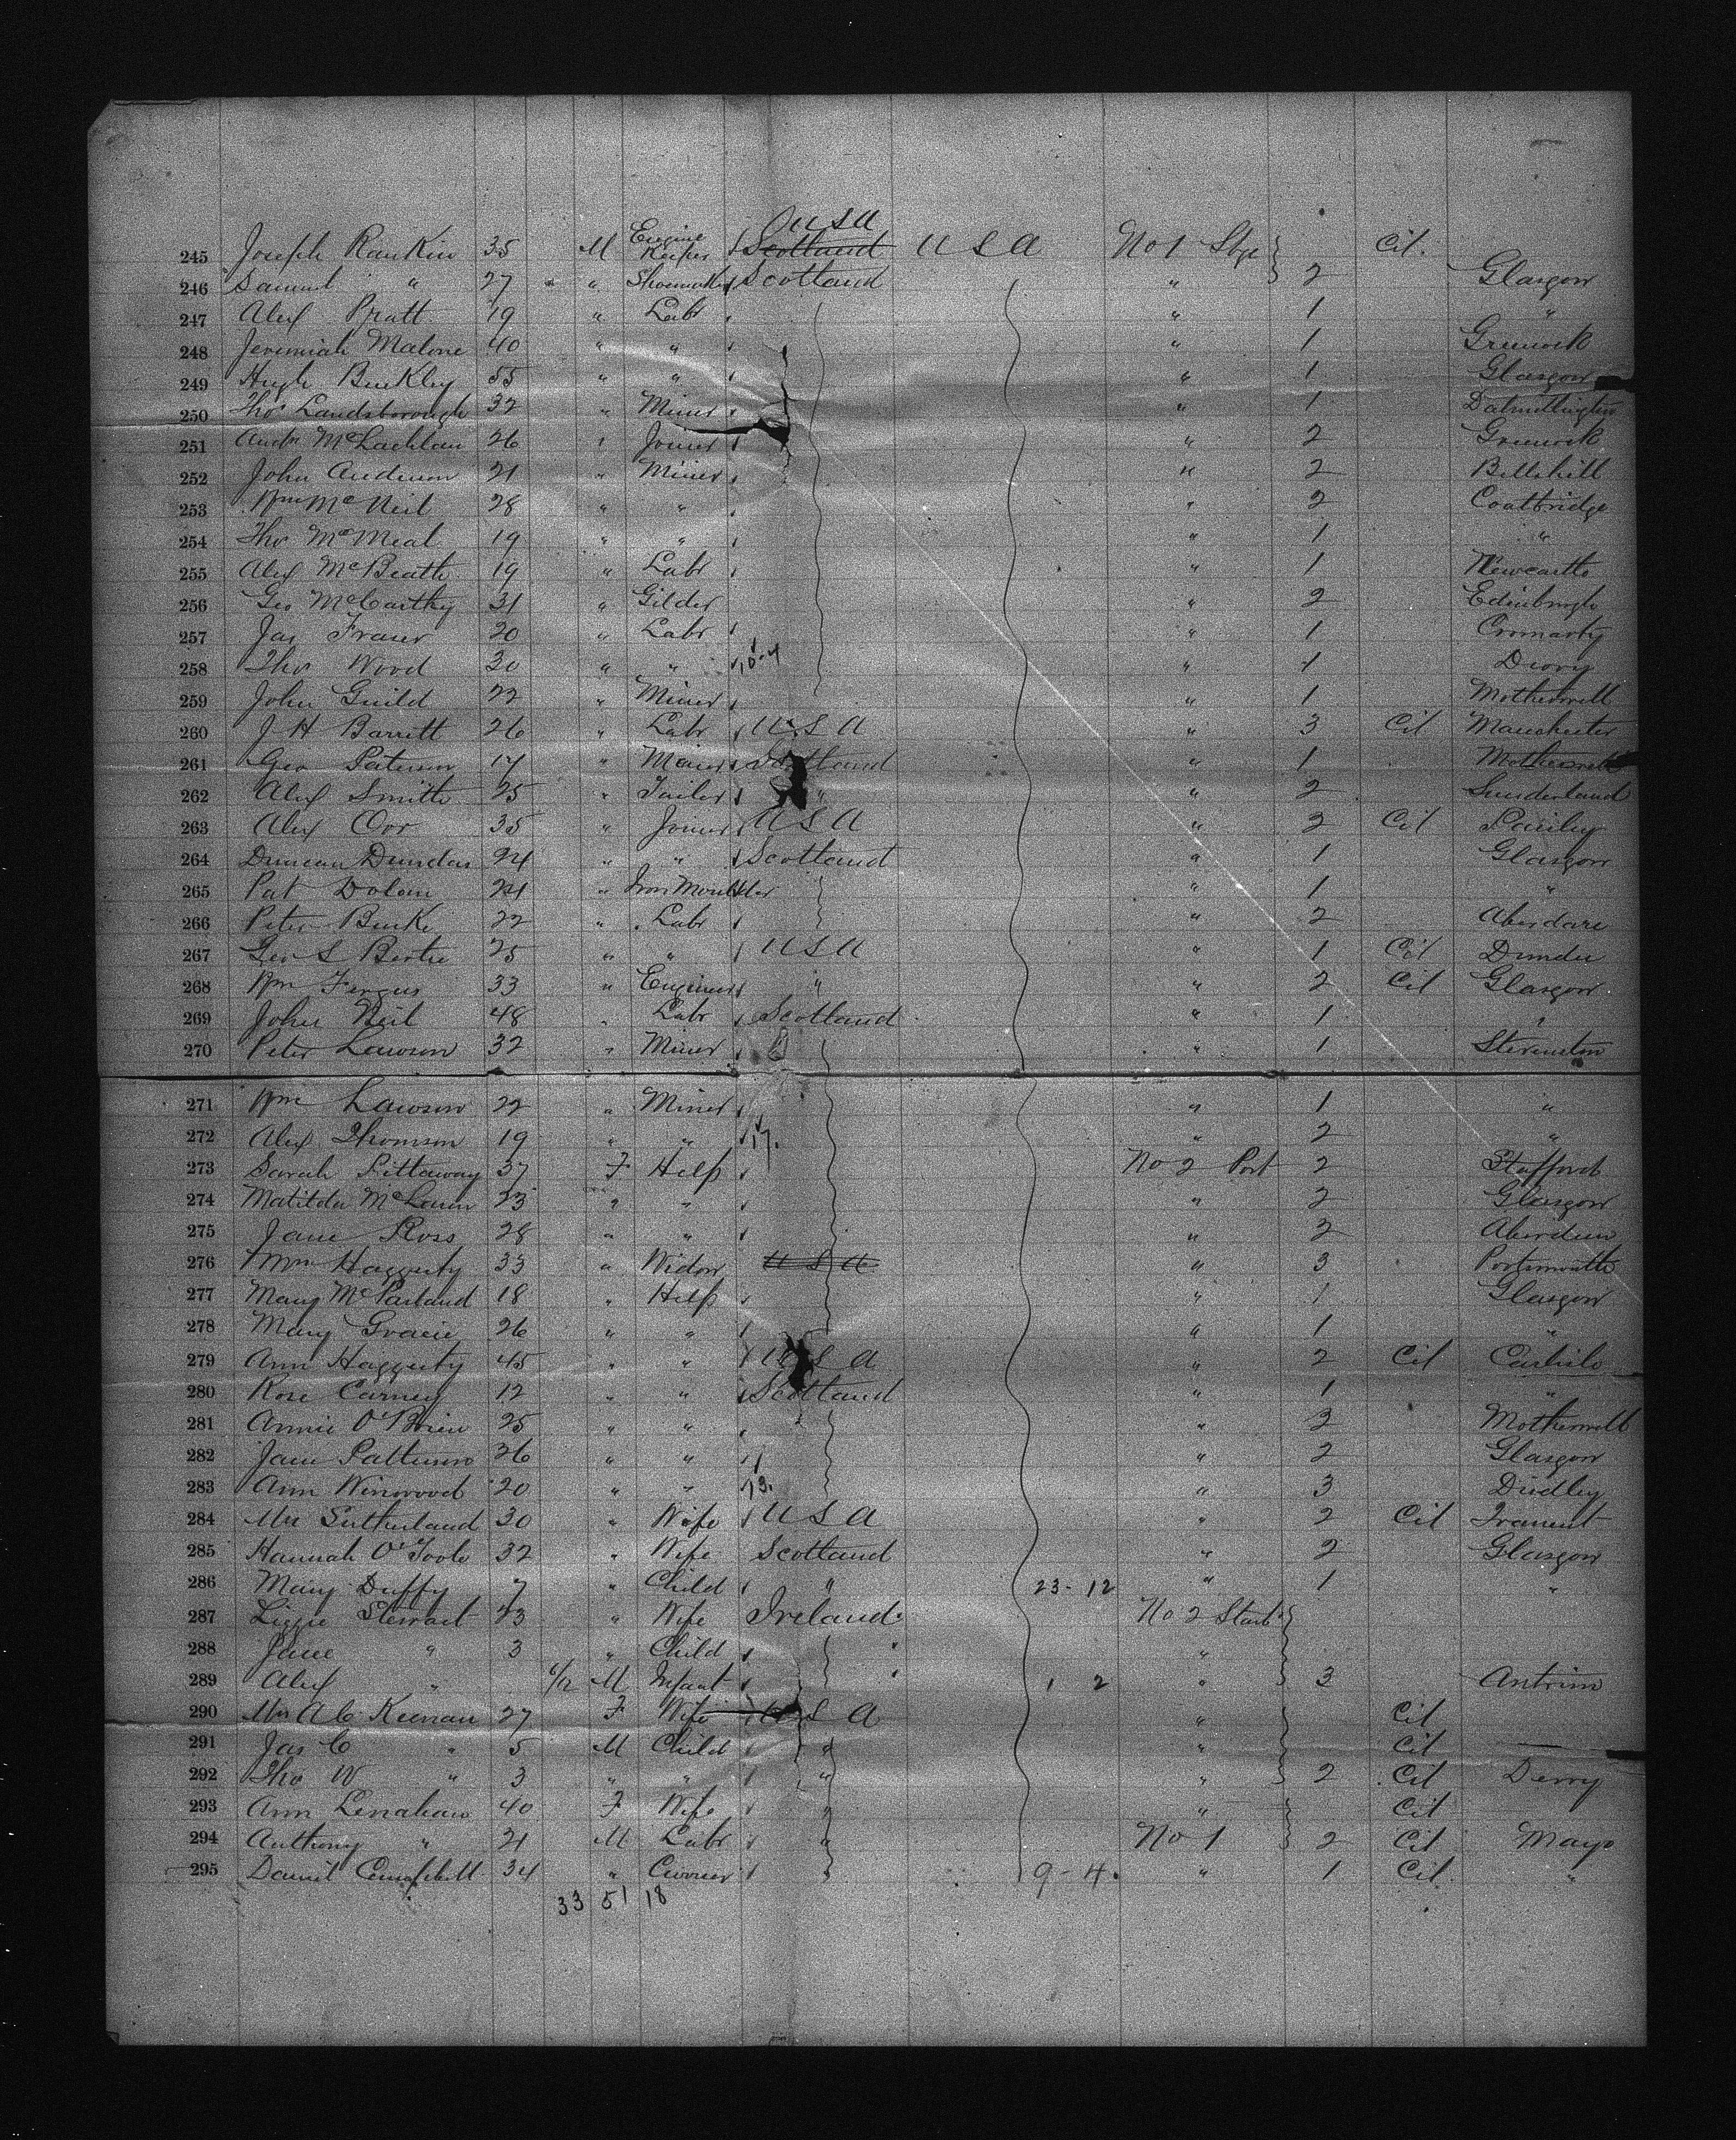 USA
245 Joseph Rankin 35 M Engine Keeper Scotland USA No 1 Stge Cit.
246 Samuel " 27 " " Shoemaker Scotland " 2 Glasgow
247 Alex Pratt 19 " Labr " 1 "
248 Jeremiah Malone 40 " " " 1 Greenock
249 Hugh Buckley 55 " " " 1 Glasgow
250 Thos Landsborough 32 " Miner " 1 Dalmellington
251 Andw McLachlan 26 " Joiner " 2 Greenock
252 John Anderson 21 " Miner " 2 Bellshill
253 Wm McNeil 28 " " " 2 Coatbridge
254 Thos McMeal 19 " " " 1 "
255 Alex McBeath 19 " Labr " 1 Newcastle
256 Geo McCarthy 31 " Gilder " 2 Edinburgh
257 Jas Fraser 20 " Labr " 1 Cromarty
258 Thos Wood 30 " " 10-4 " 1
259 John Guild 22 " Miner " 1 Motherwell
260 J H Barritt 26 " Labr USA " 3 Cit Manchester
261 Geo Paterson 17 " Miner Scotland " 1 Motherwell
262 Alex Smith 25 " Tailor " " 2 Sunderland
263 Alex Orr 35 " Joiner USA " 2 Cit Paisley
264 Duncan Dundas 24 " " Scotland " 1 Glasgow
265 Pat Dolan 24 " Iron Moulder " 1 "
266 Peter Burke 22 " Labr " 2 Aberdare
267 Geo S Bertie 25 " " USA " 1 Cit Dundee
268 Wm Fergus 33 " Engineer " " 2 Cit Glasgow
269 John Neil 48 " Labr Scotland " 1 "
270 Peter Lawson 32 " Miner " 1 Stevenston
271 Wm Lawson 22 " Miner " 1 "
272 Alex Thomson 19 " " 17. " 2 "
273 Sarah Pittaway 37 F Help No 2 Port 2 Stafford
274 Matilda McLaren 23 " " " 2 Glasgow
275 Jane Ross 28 " " " 2 Aberdeen
276 Mrs Haggerty 33 " Widow USA " 3 Portsmouth
277 Mary McParland 18 " Help " 1 Glasgow
278 Mary Gracie 26 " " " 1 "
279 Ann Haggerty 45 " " USA " 2 Cit Carlisle
280 Rose Carney 12 " " Scotland " 1 "
281 Annie O'Brien 25 " " " 2 Motherwell
282 Jane Patterson 26 " " " 2 Glasgow
283 Ann Winwood 20 " " 13. " 3 Dudley
284 Mrs Sutherland 30 " Wife USA " 2 Cit Tranent
285 Hannah O'Toole 32 " Wife Scotland " 2 Glasgow
286 Mary Duffy 7 " Child " 23-12 " 1 "
287 Lizzie Stewart 23 " Wife Ireland No 2 Starb
288 Jane " 3 " Child "
289 Alex " 6/12 M Infant 1 2 " 3 Antrim
290 Mrs A C Keenan 27 F Wife USA " Cit
291 Jas C " 5 M Child " " Cit
292 Thos W " 3 " " " " 2 Cit Derry
293 Ann Lenahan 40 F Wife " " Cit
294 Anthony " 21 M Labr " No 1 2 Cit Mayo
295 Daniel Campbell 34 " Currier 9-4. " 1 Cit "
33 51 18